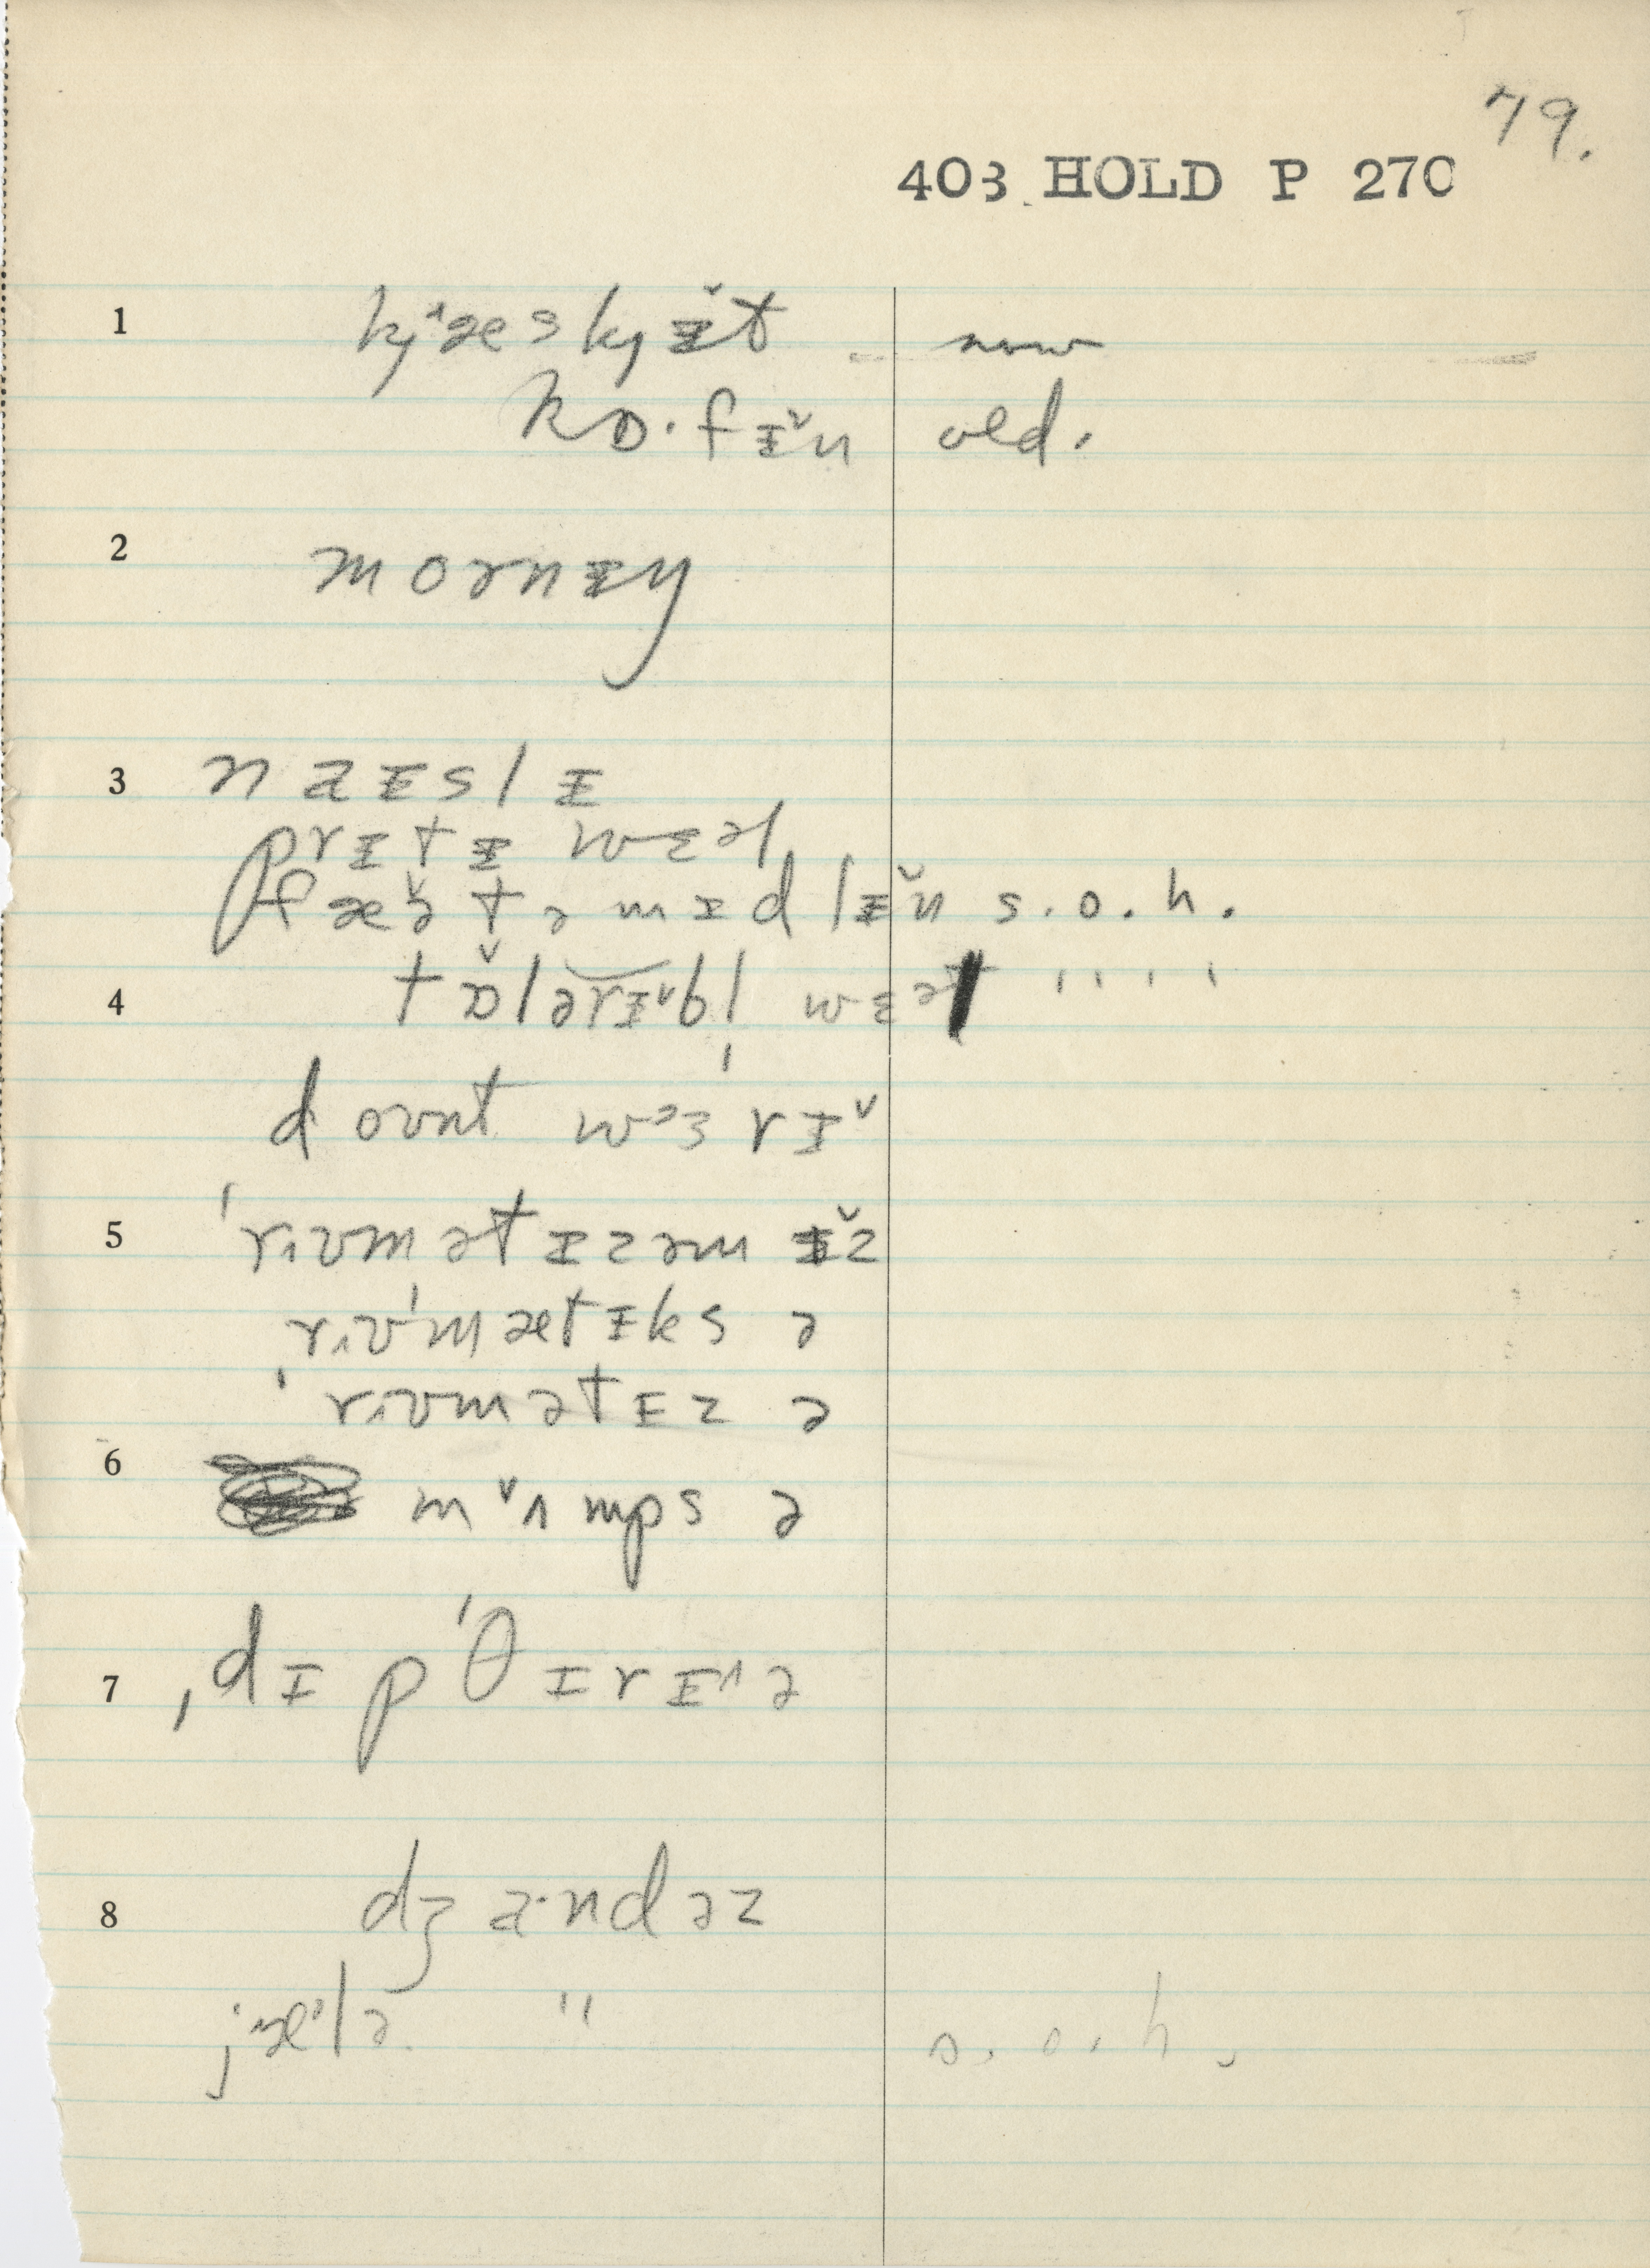 79.
403 HOLD P 270
1 kj˄æskjɪ̌t now
kɒ·fɪ̌n old.
2 mornɪŋ
3 naɪslɪ
prɪtɪ wɛəl
fæə̌tə mɪdlɪ̌n s.o.h.
4 tɒ̌lərɪ̌bl wɛəl " "
dount wɜˈrɪ̌
5 ˈrɪumətɪzəm ɪ̌z
rɪuˈmætɪks ə
ˈrɪumətɪz ə
6 mˇʌmps ə
7 ˌdɪpˈθɪrɪ˄ə
8 dʒa·ndəz
jæ˄lə " s.o.h.